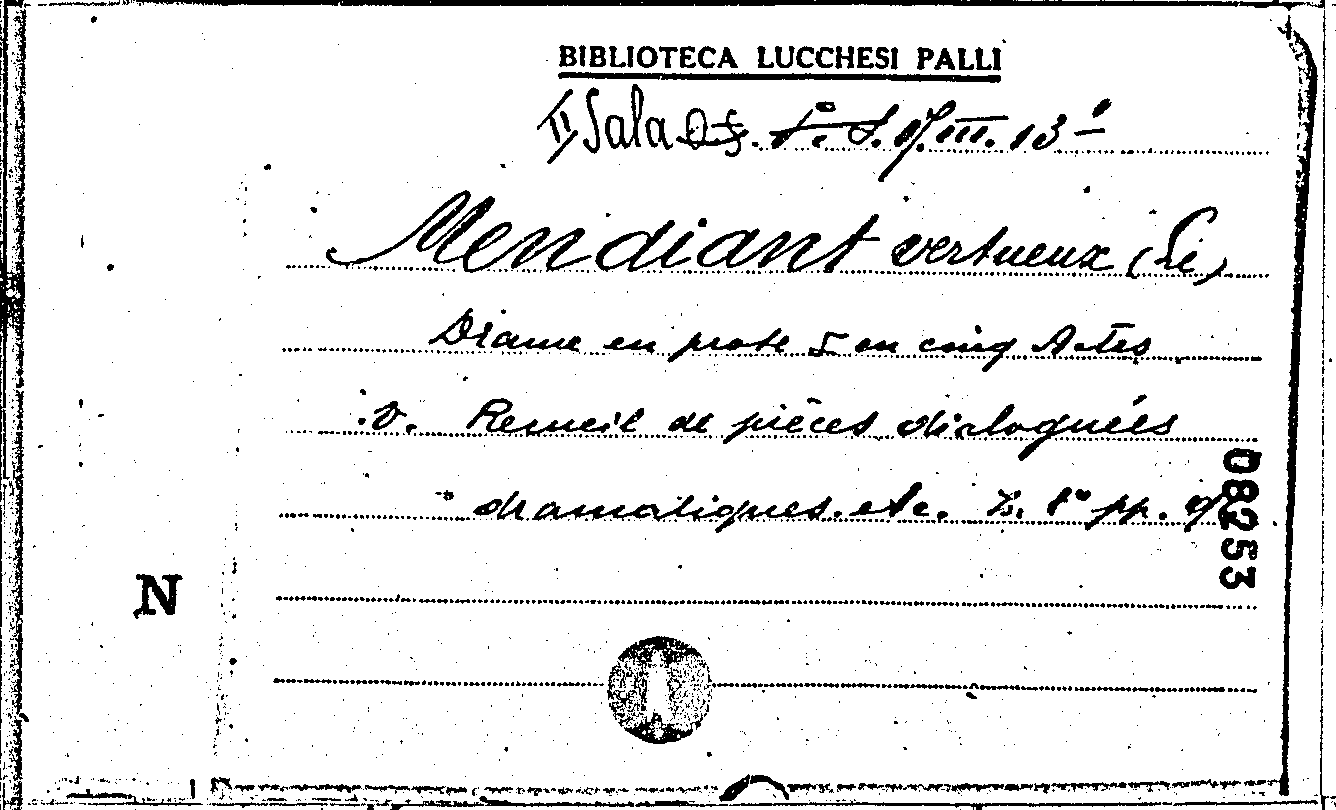 BIBLIOTECA LUCCHESI PALLI
II Sala III. 13
Mendiant vertueux (Le)
Drame en prose en cinq Actes
v. Recueil de pièces dialoguées
dramatiques. etc. pp.
08253
N